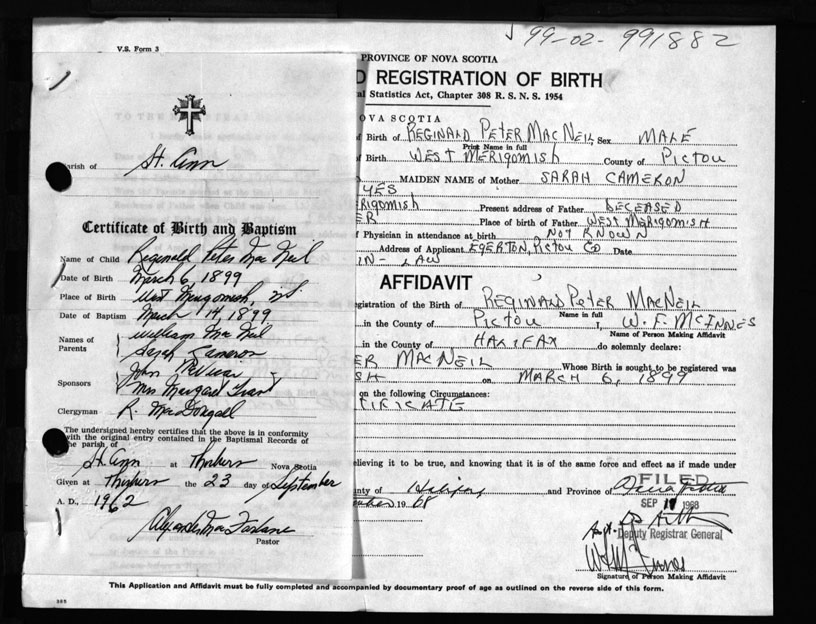 99-02-991882
V.S. Form 3
Parish of St. Ann
Certificate of Birth and Baptism
Name of Child Reginald Peter Mac Neil
Date of Birth March 6, 1899
Place of Birth West Merigomish, NS
Date of Baptism March 14, 1899
Names of Parents William Mac Neil
Sarah Cameron
Sponsors John
Mrs Margaret Grant
Clergyman R. MacDougall
The undersigned hereby certifies that the above is in conformity
with the original entry contained in the Baptismal Records of
the parish of
St. Ann at Thorburn Nova Scotia
Given at Thorburn the 23 day of September
A. D., 1962
Alexander MacFarlane
Pastor
PROVINCE OF NOVA SCOTIA
D REGISTRATION OF BIRTH
al Statistics Act, Chapter 308 R. S. N. S. 1954
OVA SCOTIA
of Birth of REGINALD PETER MACNEIL Sex MALE
Print Name in full
Birth WEST MERIGOMISH County of PICTOU
MAIDEN NAME of Mother SARAH CAMERON
YES
ERIGOMISH Present address of Father DECEASED
ER Place of birth of Father WEST MERIGOMISH
f Physician in attendance at birth NOT KNOWN
Address of Applicant EGERTON, PICTOU CO Date
IN-LAW
AFFIDAVIT
egistration of the Birth of REGINALD PETER MACNEIL
Name in full
in the County of PICTOU I, W. F. MCINNES
Name of Person Making Affidavit
in the County of HALIFAX do solemnly declare:
ER MACNEIL Whose Birth is sought to be registered was
SH on MARCH 6, 1899
on the following Circumstances:
TIFICATE
elieving it to be true, and knowing that it is of the same force and effect as if made under
nty of Halifax and Province of Nova Scotia
FILED
19 68
SEP 1968
Deputy Registrar General
Signature of Person Making Affidavit
This Application and Affidavit must be fully completed and accompanied by documentary proof of age as outlined on the reverse side of this form.